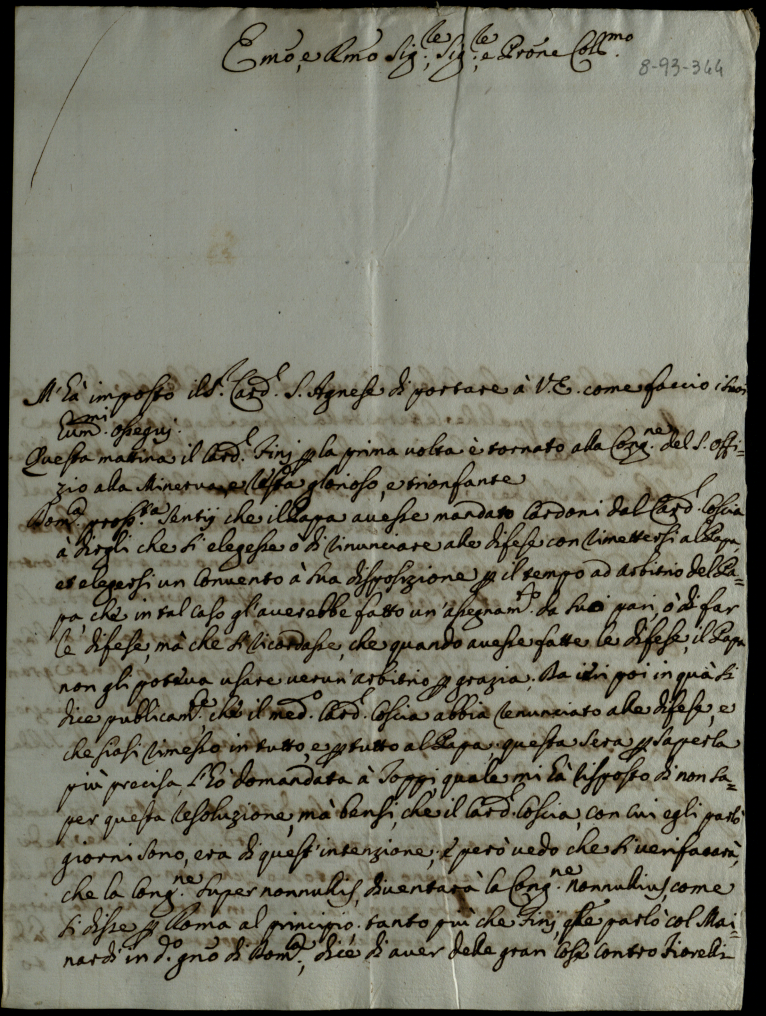 Emo, e Rmo Sig.le, Sig.le, e Prone Coll.mo
8-93-344
M'hà imposto il S.r Card.l S. Agnese di portare à V.E. come faccio i suoi
hum.mi ossequj.
Questa mattina il Card.l Finj p la prima volta è tornato alla Cong.ne del S. Offi=
zio alla Minerva, e resta glorioso, e trionfante
Dom.ca pross.a sentij che il Papa avesse mandato Cardoni dal Card.l Coscia
à dirgli che si elegesse ò di rinunciare alle difese con rimettersi al Papa,
et elegersi un Convento à sua disposizione p il tempo ad arbitrio del Pa=
pa, che in tal caso gl'averebbe fatto un'assegnam.to da suo pari, ò di far
le difese, mà che si ricordasse, che quando avesse fatte le difese, il Papa
non gli poteva usare verun'arbitrio p grazia. Da ieri poi in quà si
dice publicam.te che il med.o Card.l Coscia abbia renunciato alle difese, e
che siasi rimesso in tutto, e p tutto al Papa; questa sera p saperla
più precisa l'hò domandata à Joppi quale mi hà risposto di non sa=
per questa resoluzione, mà bensi, che il Card.l Coscia, con cui egli parlò
giorni sono, era di quest'intenzione; e però vedo che si verificarà,
che la Cong.ne super nonnullis, diventarà la Cong.ne nonnullius, come
si disse p Roma al principio. tanto più che Finj, che parlò col Mai=
nardi in d.o gno di Dom.ca, dice di aver delle gran cose contro Fiorelli